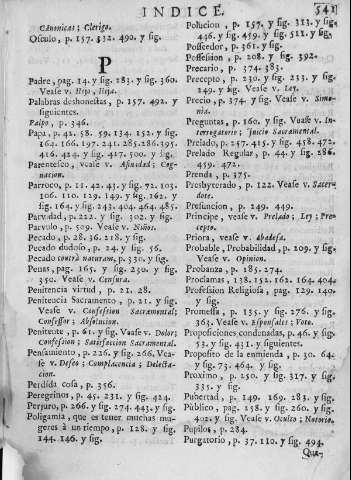 INDICE. 541
Canonicas; Clerigo.
Osculo, p. 157. 332. 490. y sig.
P
Padre, pag. 14. y sig. 183. y sig. 360.
Vease v. Hijo, Hija.
Palabras deshonestas, p. 157. 492. y
siguientes.
Palpo, p. 346.
Papa, p. 42. 58. 59. 134. 152. y sig.
164. 166. 197. 241. 285. 286. 395.
416. 424. y sig. 417. 500. y sig.
Parentesco, vease v. Afinidad; Cog-
nacion.
Parroco, p. 11. 42. 43. y sig. 72. 103.
106. 110. 129. 149. y sig. 162. y
sig. 164. y sig. 243. 404. 464. 485.
Parvidad, p. 222. y sig. 302. y sig.
Parvulo, p. 509. Vease v. Niños.
Pecado, p. 28. 36. 218. y sig.
Pecado dudoso, p. 24. y sig. 56.
Pecado contrà naturam, p. 330. y sig.
Penas, pag. 165. y sig. 230. y sig.
350. Vease v. Censura.
Penitencia virtud, p. 21. 28.
Penitencia Sacramento, p. 21. y sig.
Vease v. Confession Sacramental;
Confessor; Absolucion.
Penitente, p. 61. y sig. Vease v. Dolor;
Confession; Satisfaccion Sacramental.
Pensamiento, p. 226. y sig. 266. Vea-
se v. Deseo; Complacencia; Delecta-
cion.
Perdida cosa, p. 356.
Peregrinos, p. 45. 231. y sig. 424.
Perjuro, p. 266. y sig. 274. 443. y sig.
Poligamia, que es tener muchas mu-
geres à un tiempo, p. 128. y sig.
144. 146. y sig.
Polucion, p. 157. y sig. 313. y sig.
436. y sig. 459. y sig. 511. y sig.
Posseedor, p. 361. y sig.
Possession, p. 208. y sig. 392.
Precario, p. 374. 383.
Precepto, p. 230. y sig. 233. y sig.
249. y sig. Vease v. Ley.
Precio, p. 374. y sig. Vease v. Simo-
nia.
Preguntas, p. 160. y sig. Vease v. In-
terrogatorio; Juicio Sacramental.
Prelado, p. 257. 415. y sig. 458. 472.
Prelado Regular, p. 44. y sig. 286.
459. 472.
Prenda, p. 375.
Presbyterado, p. 122. Vease v. Sacer-
dote.
Presuncion, p. 249. 449.
Principe, vease v. Prelado; Ley; Pre-
cepto.
Priora, vease v. Abadesa.
Probable, Probabilidad, p. 209. y sig.
Vease v. Opinion.
Probanza, p. 185. 274.
Proclamas, 138. 152. 162. 164. 404.
Profession Religiosa, pag. 129. 140.
y sig.
Promessa, p. 135. y sig. 276. y sig.
363. Vease v. Esponsales; Voto.
Proposiciones condenadas, p. 46. y sig.
53. y sig. 431. y siguientes.
Proposito de la enmienda, p. 30. 64.
y sig. 73. 464. y sig.
Proximo, p. 250. y sig. 317. y sig.
335. y sig.
Pubertad, p. 149. 169. 283. y sig.
Publico, pag. 158. y sig. 260. y sig.
402. y sig. Vease v. Oculto; Notorio.
Pupilos, p. 284.
Purgatorio, p. 37. 110. y sig. 494.
Qua-